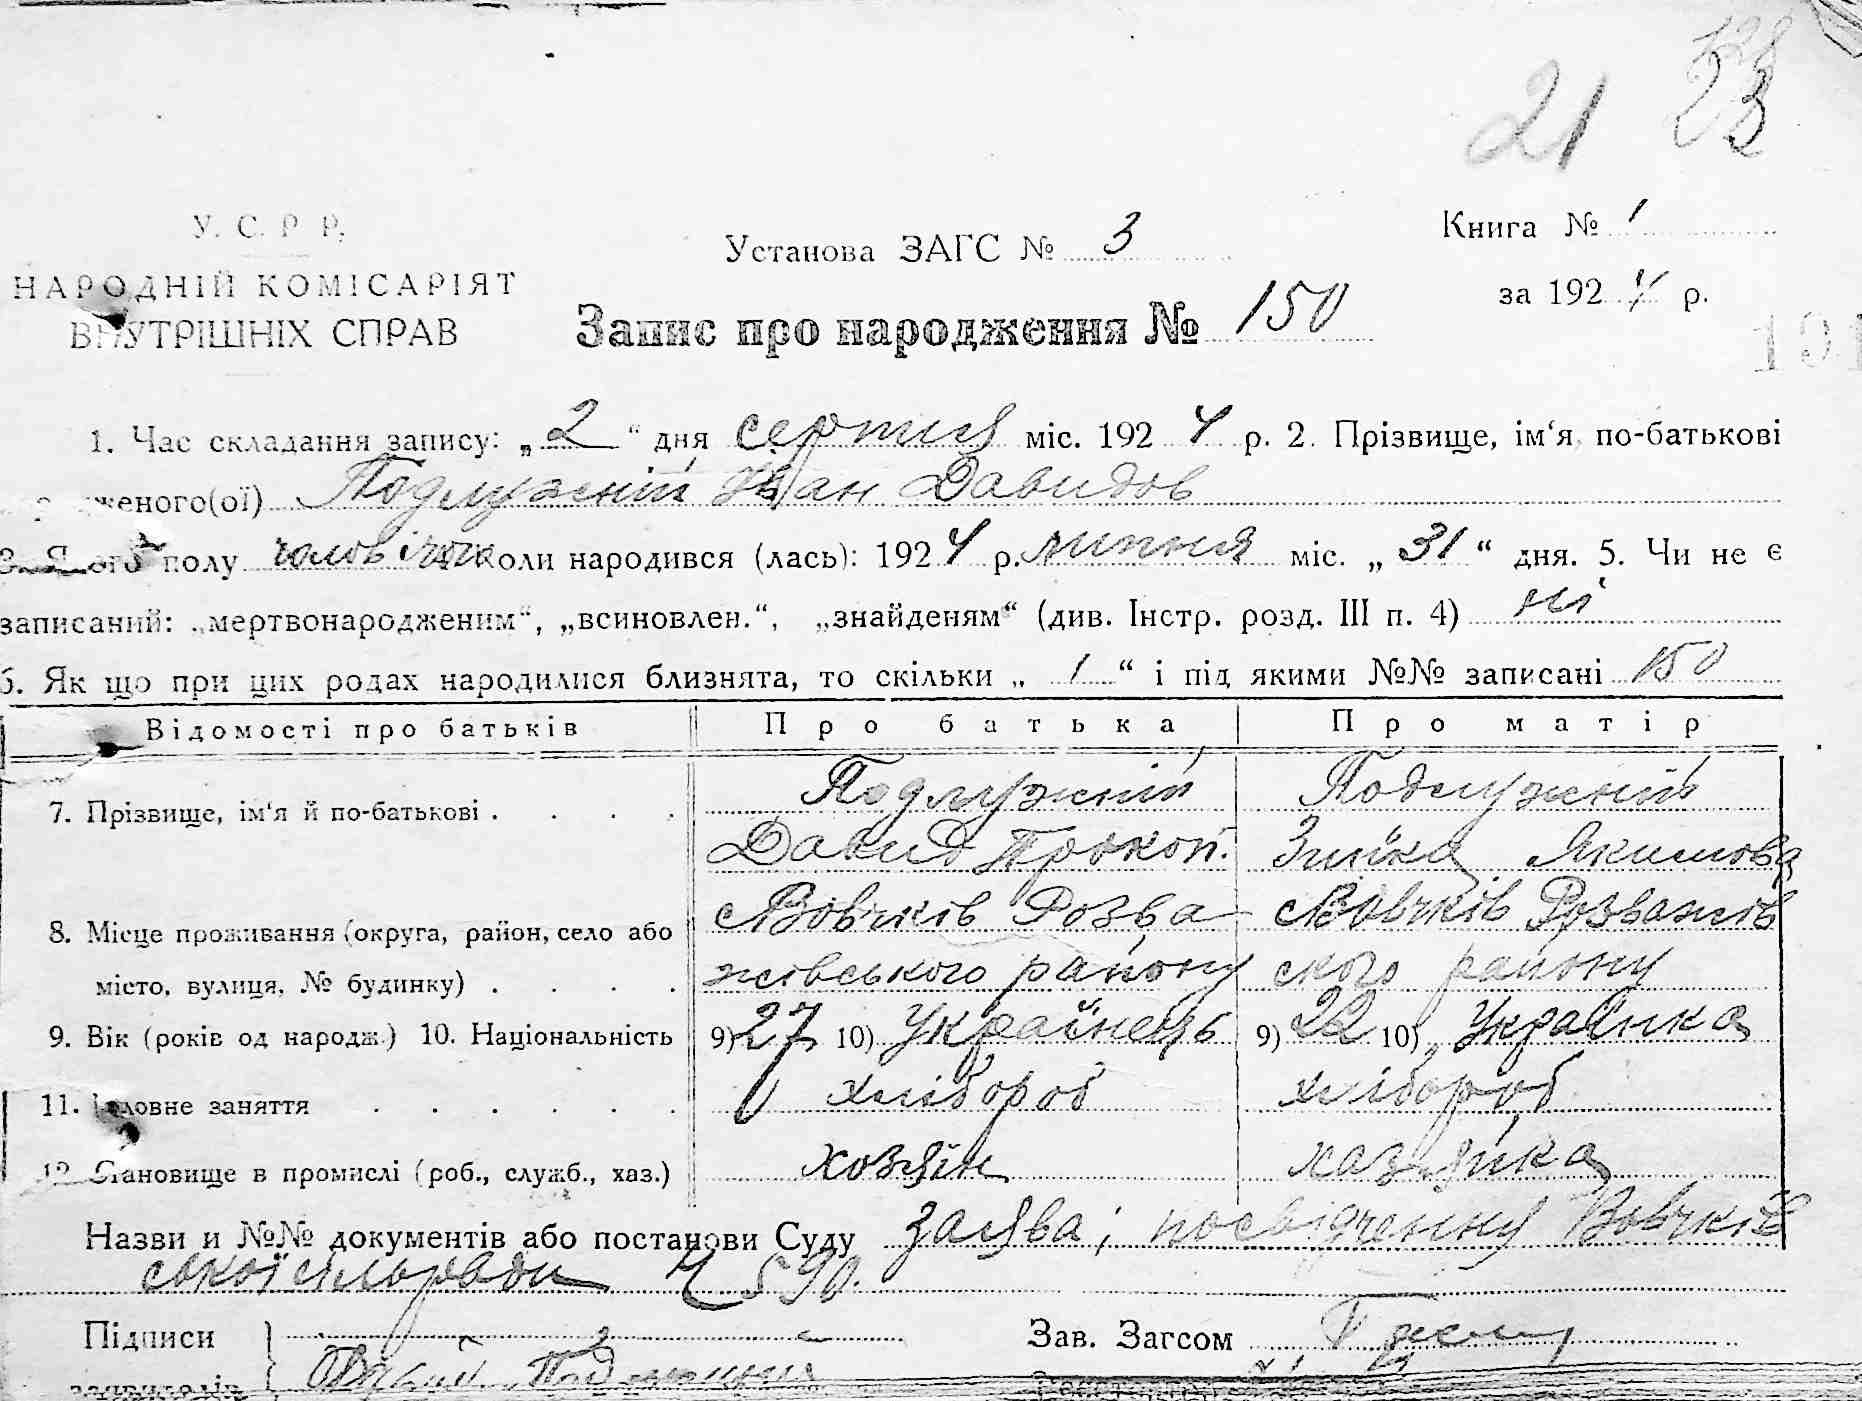 21 23
У. С. Р Р.
НАРОДНІЙ КОМІСАРІЯТ
ВНУТРІШНІХ СПРАВ
Установа ЗАГС № 3
Книга № 1
за 1924 р.
Запис про народження № 150
191
1. Час складання запису: „2“ дня серпня міс. 1924 р. 2. Прізвище, ім‘я, по-батькові
женого(ої) Подлужній Іван Давидов
3. Якого полу чоловічого коли народився (лась): 1924 р. липня міс. „31“ дня. 5. Чи не є
записаний: „мертвонародженим“, „всиновлен.“, „знайденям“ (див. Інстр. розд. III п. 4) ні
6. Як що при цих родах народилися близнята, то скільки „1“ і під якими №№ записані 150
Відомості про батьків Про батька Про матір
7. Прізвище, ім‘я й по-батькові . . . . Подлужній Подлужній
Давид Прокоп. Зінька Якимова
8. Місце проживання (округа, район, село або с Вовчків Розва с Вовчків Розважів
місто, вулиця, № будинку) . . . . жівського району ского району
9. Вік (років од народж.) 10. Національність 9) 27 10) Українець 9) 22 10) Українка
11. Головне заняття . . . . . . хлібороб хлібороб
12. Становище в промислі (роб., служб., хаз.) хозяїн хазяйка
Назви и №№ документів або постанови Суду заява і посвідчення Вовчків
ської сільради № 590.
Підписи
Зав. Загсом
заявителів